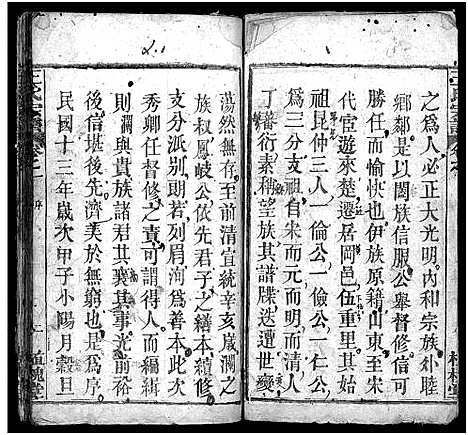 之爲人必正大光明內和宗族外睦
鄉鄰是以闔族信服公舉督修信可
勝任而愉快也伊族原籍山東歷
代宦遊來楚遷居岡邑伍重里其
祖昆仲三人一倫公一儉公一
爲三分支祖自宋而元而明
丁蕃衍素稱望族其譜牒迭遭世變
蕩然無存至前清宣統辛亥歲瀾之
族叔鳳岐公依先君子之繕本續修
支分派別朗若列眉洵爲善本此次
秀卿任督修之責可謂得人而編緝
則瀾與貴族諸君其襄其事光前裕
後信堪後先濟美於無窮也是爲序
民國十三年歲次甲子小陽月穀旦